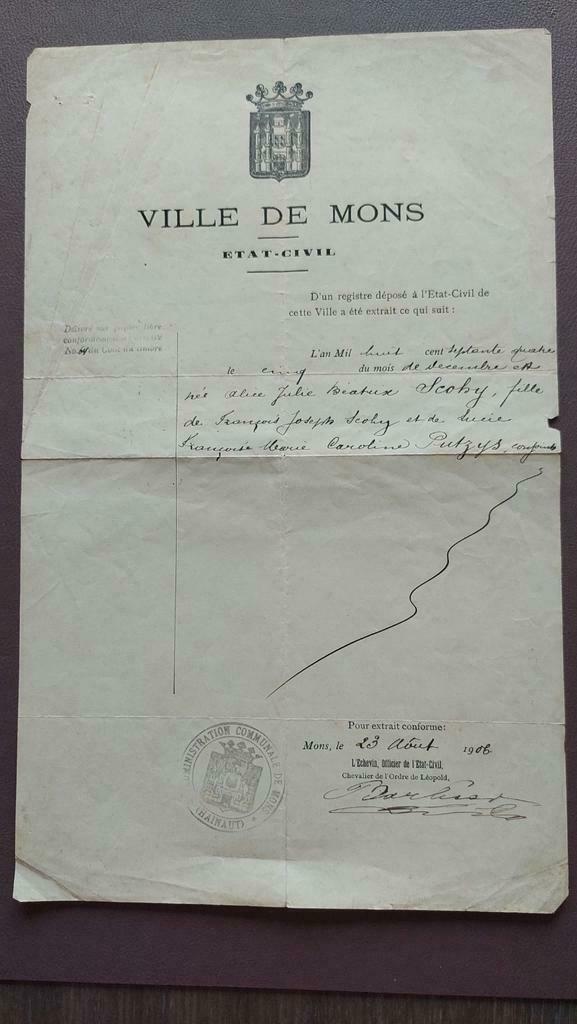 VILLE DE MONS
ETAT-CIVIL
D'un registre déposé à l'Etat-Civil de
cette Ville a été extrait ce qui suit :
Délivré sur papier libre
conformément
No. 64 du Code du timbre
L'an Mil huit cent septante quatre
le cinq du mois de decembre est
née Alice Julie Béatrix Scohy, fille
de François Joseph Scohy et de Lucie
Françoise Marie Caroline Putzys, conjoints
Pour extrait conforme:
Mons, le 23 Août 1906
L'Echevin, Officier de l'Etat-Civil,
Chevalier de l'Ordre de Léopold,
ADMINISTRATION COMMUNALE DE MONS
(HAINAUT)